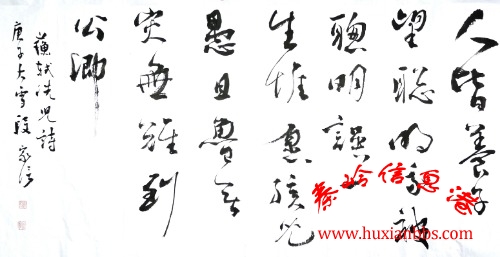 人皆養子
望聪明我被
聰明誤一
生惟愿孩兒
愚且魯無
灾無難到
公卿
蘇軾洗兒詩
庚子大雪段家信
秦岭信息港
www.huxianbbs.com